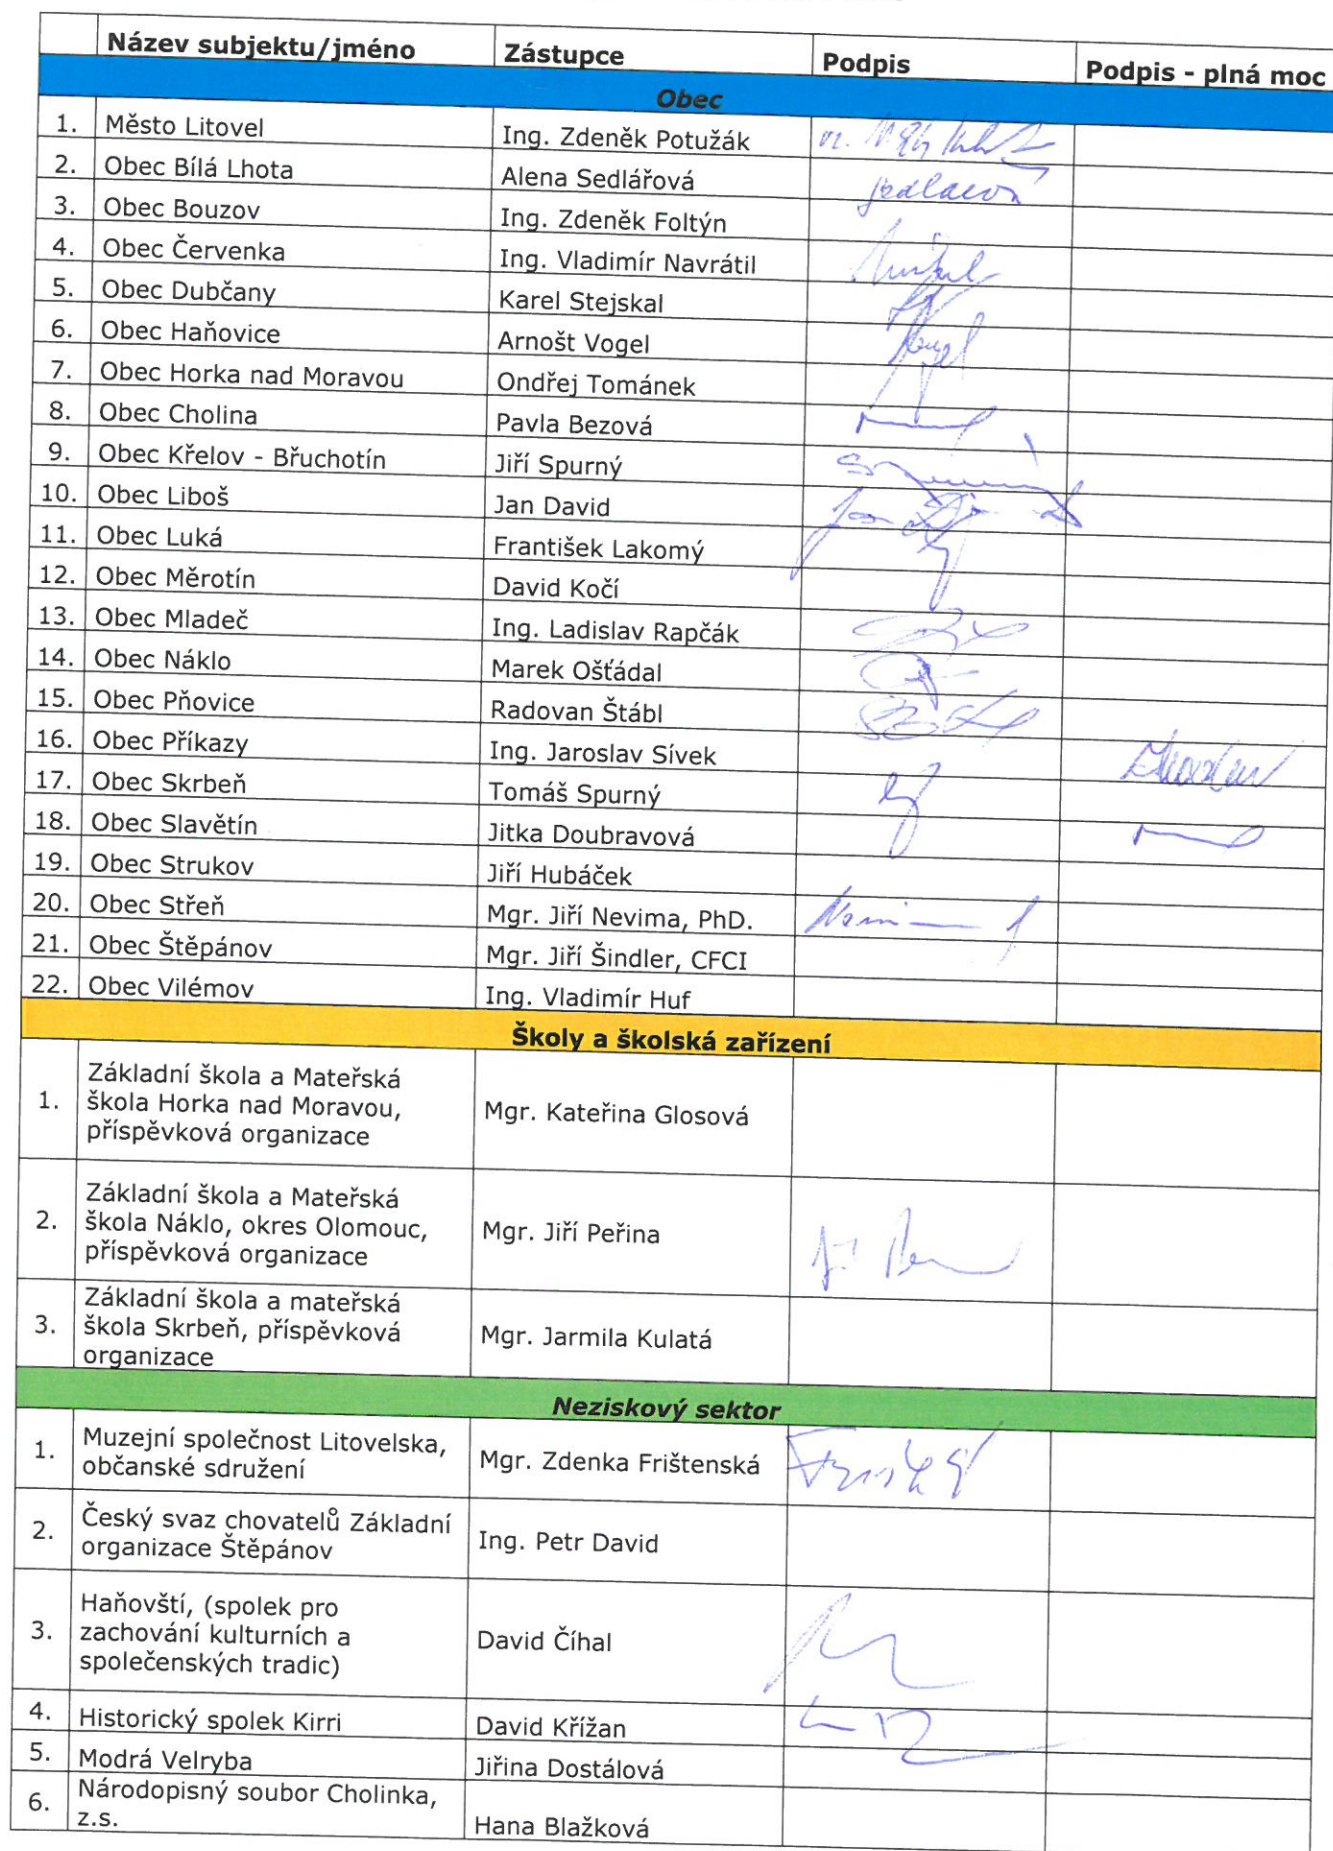 Název subjektu/jméno Zástupce Podpis Podpis - plná moc
Obec
1. Město Litovel Ing. Zdeněk Potužák
2. Obec Bílá Lhota Alena Sedlářová
3. Obec Bouzov Ing. Zdeněk Foltýn
4. Obec Červenka Ing. Vladimír Navrátil
5. Obec Dubčany Karel Stejskal
6. Obec Haňovice Arnošt Vogel
7. Obec Horka nad Moravou Ondřej Tománek
8. Obec Cholina Pavla Bezová
9. Obec Křelov - Břuchotín Jiří Spurný
10. Obec Liboš Jan David
11. Obec Luká František Lakomý
12. Obec Měrotín David Kočí
13. Obec Mladeč Ing. Ladislav Rapčák
14. Obec Náklo Marek Ošťádal
15. Obec Pňovice Radovan Štábl
16. Obec Příkazy Ing. Jaroslav Sívek
17. Obec Skrbeň Tomáš Spurný
18. Obec Slavětín Jitka Doubravová
19. Obec Strukov Jiří Hubáček
20. Obec Střeň Mgr. Jiří Nevima, PhD.
21. Obec Štěpánov Mgr. Jiří Šindler, CFCI
22. Obec Vilémov Ing. Vladimír Huf
Školy a školská zařízení
Základní škola a Mateřská
1. škola Horka nad Moravou, Mgr. Kateřina Glosová
příspěvková organizace
Základní škola a Mateřská
2. škola Náklo, okres Olomouc, Mgr. Jiří Peřina
příspěvková organizace
Základní škola a mateřská
3. škola Skrbeň, příspěvková Mgr. Jarmila Kulatá
organizace
Neziskový sektor
1. Muzejní společnost Litovelska, Mgr. Zdenka Frištenská
občanské sdružení
2. Český svaz chovatelů Základní Ing. Petr David
organizace Štěpánov
Haňovští, (spolek pro
3. zachování kulturních a David Číhal
společenských tradic)
4. Historický spolek Kirri David Křížan
5. Modrá Velryba Jiřina Dostálová
6. Národopisný soubor Cholinka,
z.s. Hana Blažková